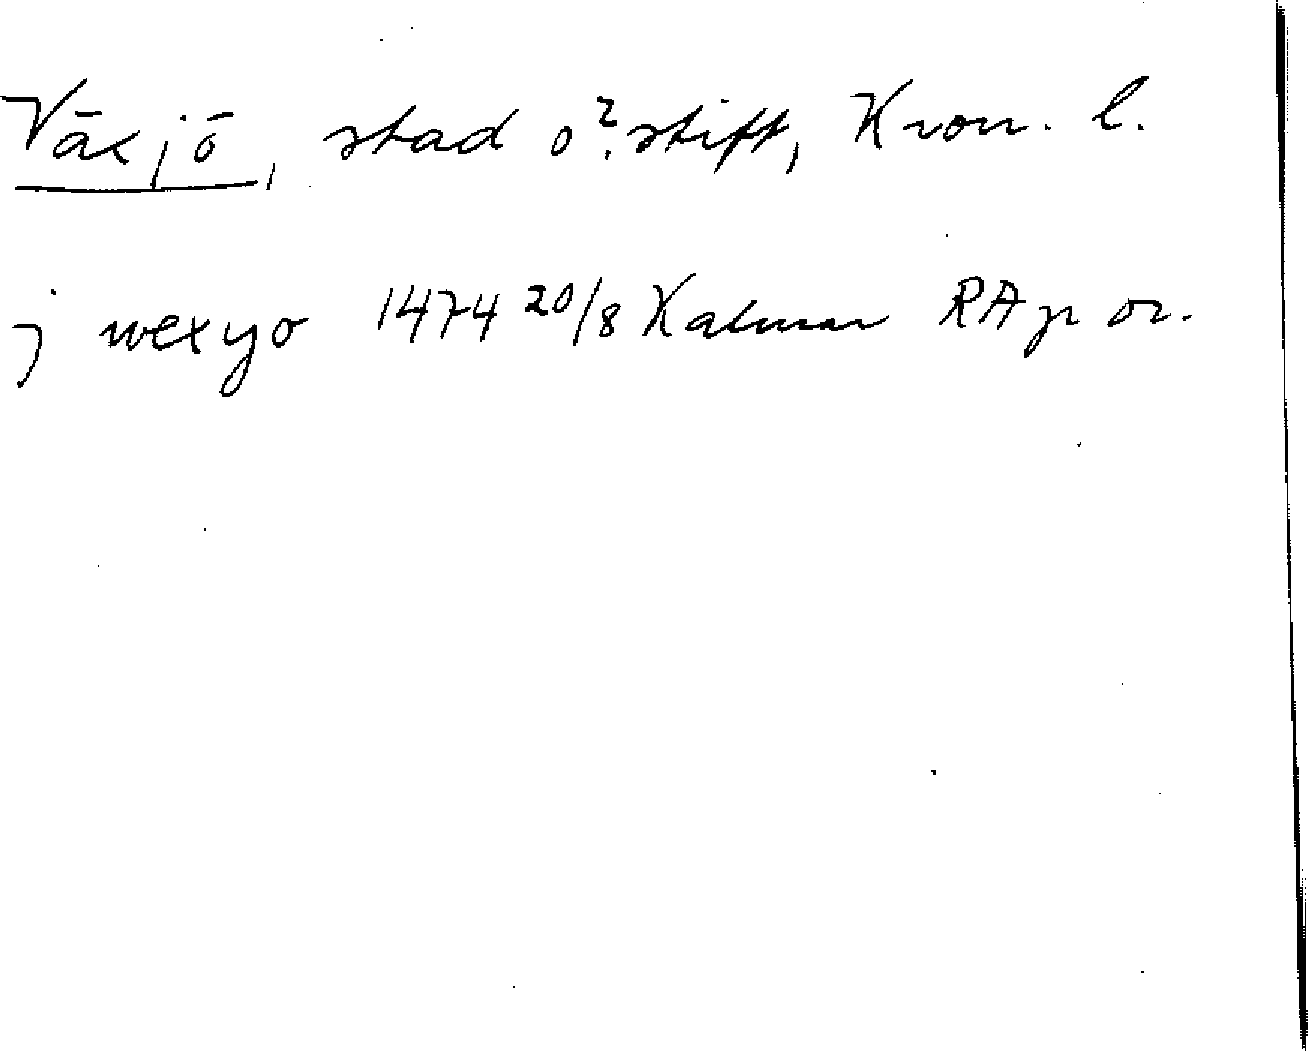 Växjö, stad o? stift, Kron. l.
j wexyo 1474 20/8 Kalmar RAp or.